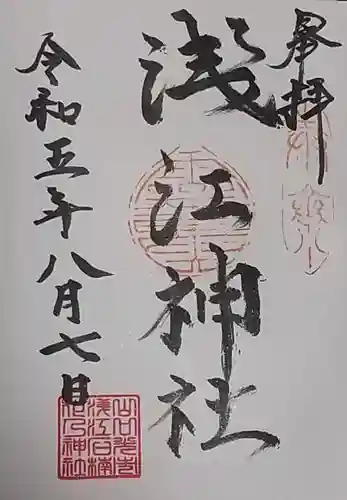 奉拝
浅江神社
令和五年八月七日